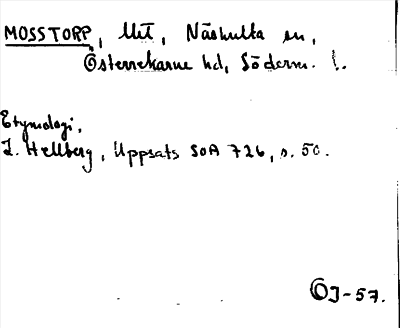 MOSSTORP, Utt, Näshulta sn,
Österrekarne hd, Söderm. l.
Etymologi,
L. Hellberg, Uppsats SOA 726, s. 50.
OJ-57.